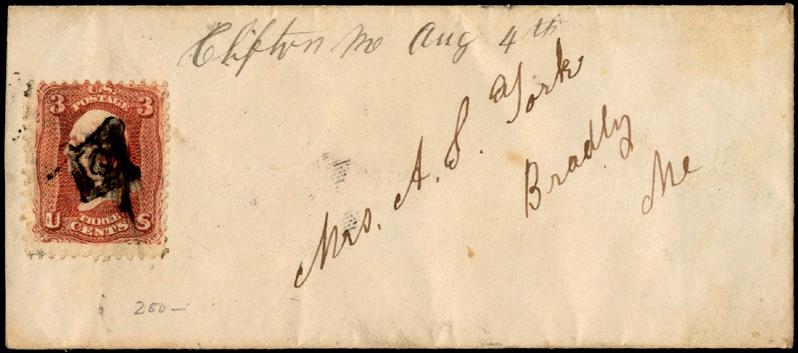 Clifton Me Aug 4th
3 U.S. 3
POSTAGE
U THREE S
CENTS
Mrs. A. S. York
Bradly
Me
250—